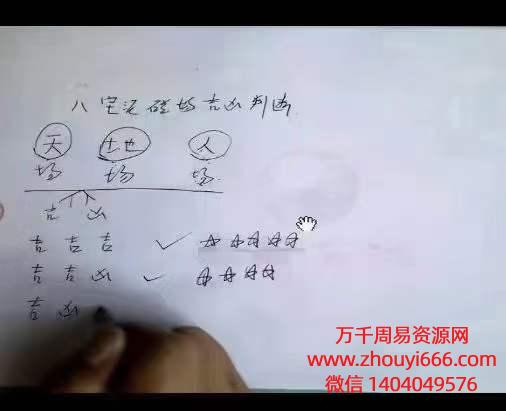 八宅派磁场吉凶判断
天 地 人
场 场 场
吉 凶
吉 吉 吉 ✓ ☆☆☆☆☆
吉 吉 凶 ✓ ☆☆☆☆
吉 凶
万千周易资源网
www.zhouyi666.com
微信 1404049576